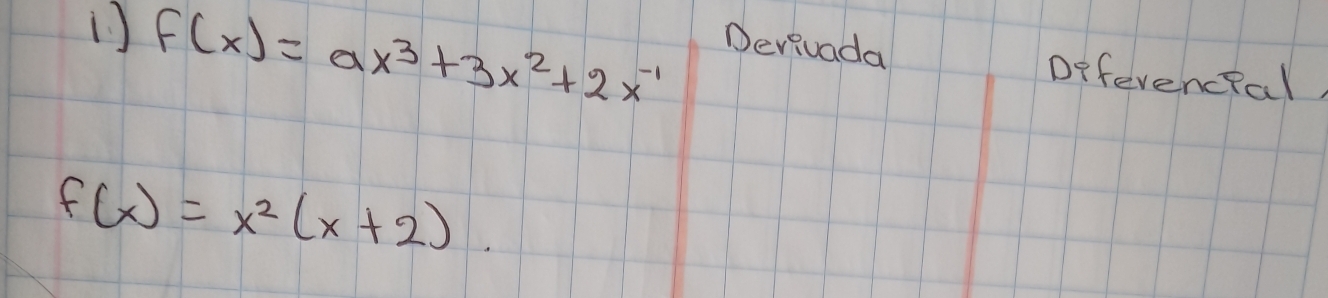 1.) f(x) = ax³ + 3x² + 2x⁻¹
Derivada
Diferencial
f(x) = x² (x + 2).